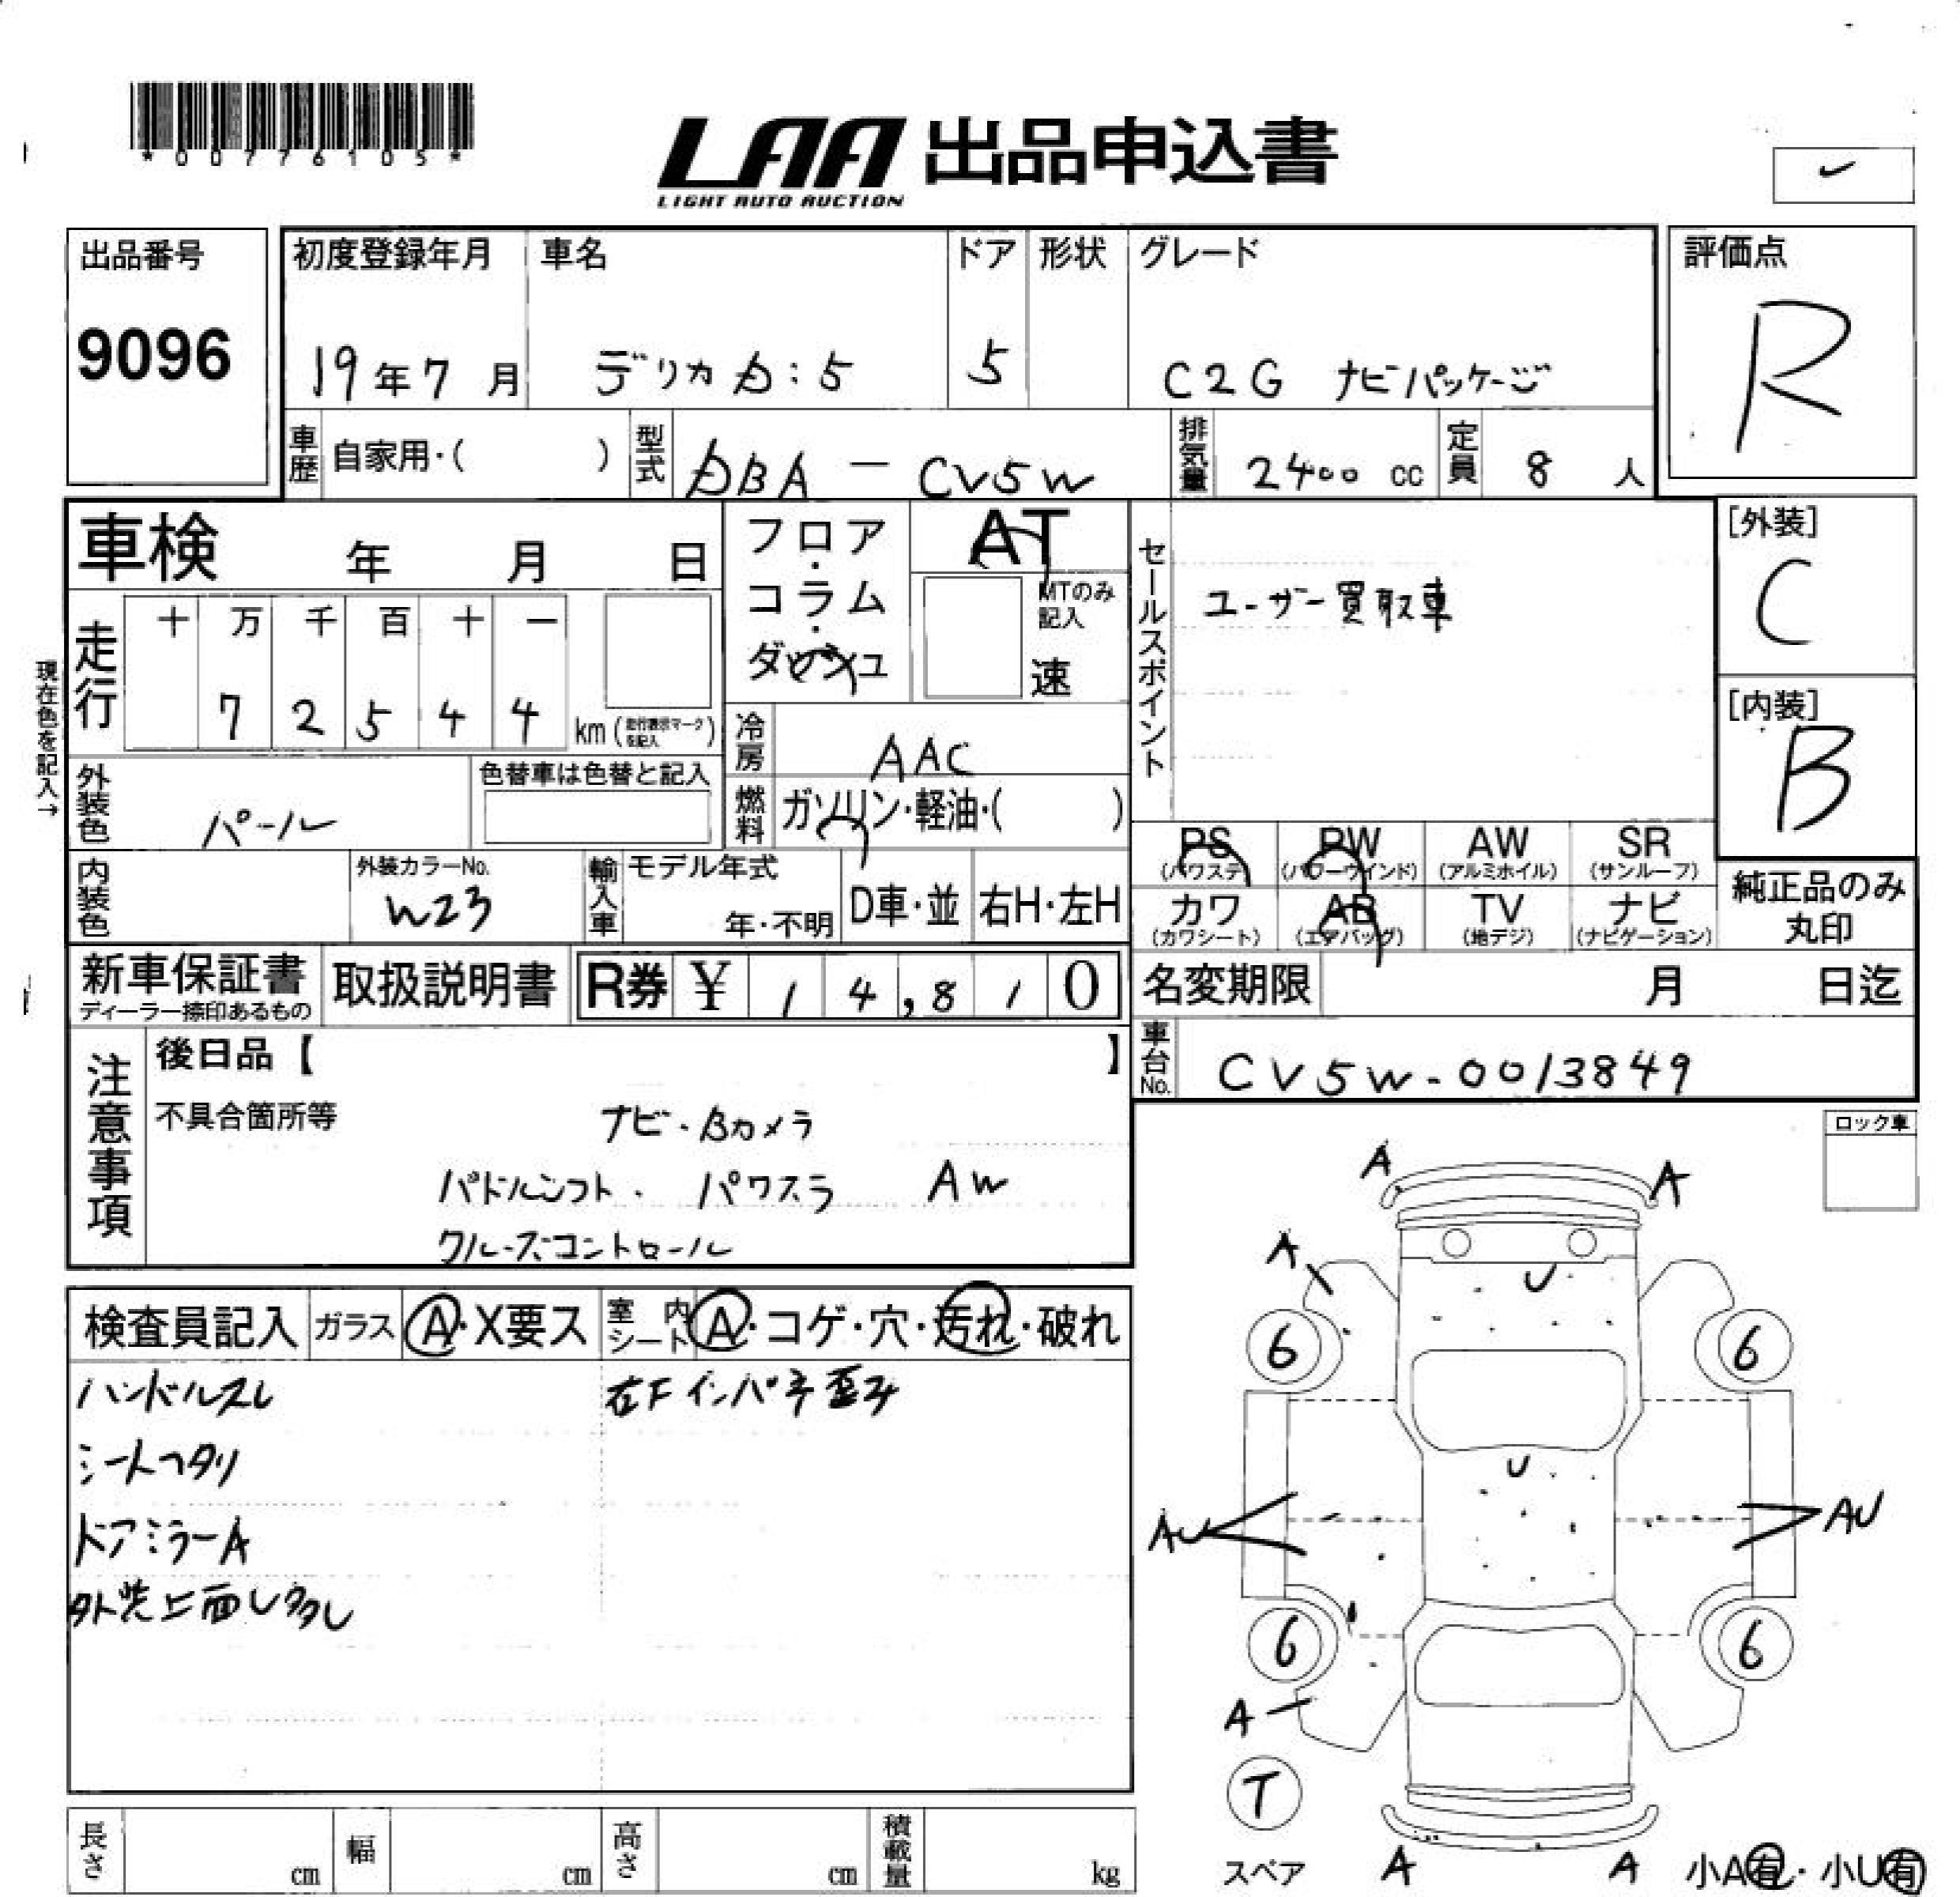 *00776105*
LAA 出品申込書
LIGHT AUTO AUCTION
出品番号
9096
初度登録年月 車名 ドア 形状 グレード
19年7月 デリカD:5 5 C2G ナビパッケージ
評価点
R
車歴 自家用・( ) 型式 DBA－CV5W 排気量 2400 cc 定員 8 人
車検 年 月 日
フロア・コラム・ダッシュ
AT
MTのみ記入
速
セールスポイント
ユーザー買取車
[外装]
C
[内装]
B
現在色を記入→
走行 十 万 千 百 十 一
7 2 5 4 4 km (走行表示マークを記入)
冷房 AAC
外装色 パール 色替車は色替と記入
燃料 ガソリン・軽油・( )
PS (パワステ) PW (パワーウインド) AW (アルミホイル) SR (サンルーフ)
カワ (カワシート) AB (エアバッグ) TV (地デジ) ナビ (ナビゲーション)
純正品のみ丸印
内装色 外装カラーNo. W23 輸入車 モデル年式 年・不明 D車・並 右H・左H
新車保証書 ディーラー捺印あるもの 取扱説明書 R券 ¥ 1 4,8 1 0
名変期限 月 日迄
車台No. CV5W-0013849
注意事項
後日品【 】
不具合箇所等
ナビ・Bカメラ
パドルシフト・ パワスラ AW
クルーズコントロール
ロック車
検査員記入 ガラス A・X要ス 室内シート A・コゲ・穴・汚れ・破れ
ハンドルスレ 右Fインパネ歪み
シートヘタリ
ドアミラーA
外装上面U多し
A A
A
U
6 6
U
AU AU
6 6
A
T
スペア A A 小A有・小U有
長さ cm 幅 cm 高さ cm 積載量 kg